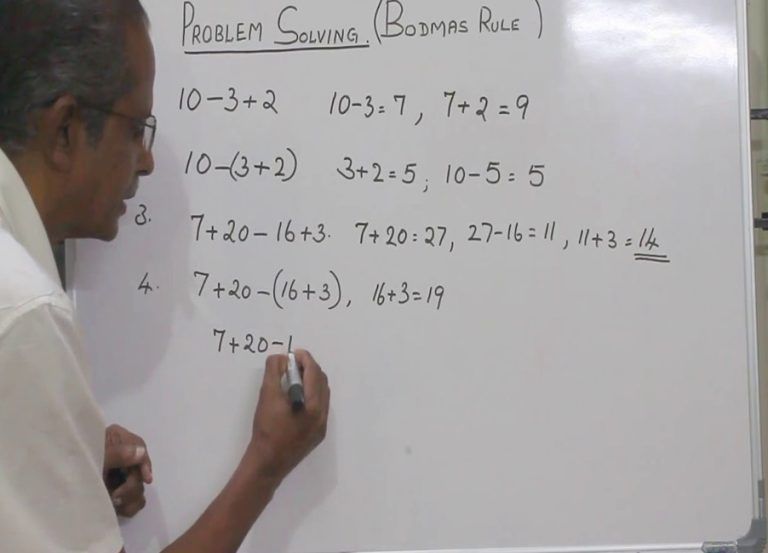 PROBLEM SOLVING. (BODMAS RULE)
10-3+2 10-3=7, 7+2=9
10-(3+2) 3+2=5; 10-5=5
3. 7+20-16+3. 7+20=27, 27-16=11, 11+3=14
4. 7+20-(16+3), 16+3=19
7+20-1